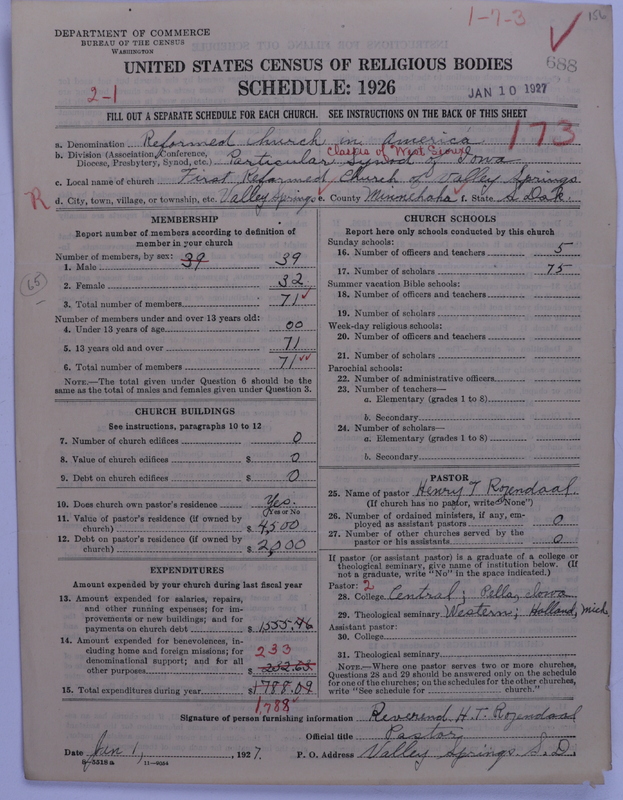 1-7-3
156
DEPARTMENT OF COMMERCE
BUREAU OF THE CENSUS
WASHINGTON
688
UNITED STATES CENSUS OF RELIGIOUS BODIES
SCHEDULE: 1926
2-1
JAN 10 1927
FILL OUT A SEPARATE SCHEDULE FOR EACH CHURCH. SEE INSTRUCTIONS ON THE BACK OF THIS SHEET
173
a. Denomination Reformed Church in America
Classis of West Sioux
b. Division (Association, Conference, Diocese, Presbytery, Synod, etc.) Particular Synod of Iowa
c. Local name of church First Reformed Church of Valley Springs
R
d. City, town, village, or township, etc. Valley Springs e. County Minnehaha f. State S. Dak.
MEMBERSHIP
Report number of members according to definition of
member in your church
Number of members, by sex: 39
1. Male 39
2. Female 32
65
3. Total number of members 71
Number of members under and over 13 years old:
4. Under 13 years of age 00
5. 13 years old and over 71
6. Total number of members 71
NOTE.—The total given under Question 6 should be the
same as the total of males and females given under Question 3.
CHURCH BUILDINGS
See instructions, paragraphs 10 to 12
7. Number of church edifices 0
8. Value of church edifices $ 0
9. Debt on church edifices $ 0
10. Does church own pastor's residence Yes.
(Yes or No)
11. Value of pastor's residence (if owned by
church) $ 4500
12. Debt on pastor's residence (if owned by
church) $ 2000
EXPENDITURES
Amount expended by your church during last fiscal year
13. Amount expended for salaries, repairs,
and other running expenses; for im-
provements or new buildings; and for
payments on church debt $ 1555.46
14. Amount expended for benevolences, in-
cluding home and foreign missions; for
denominational support; and for all
other purposes $
233
15. Total expenditures during year $ 1788.09
1788
CHURCH SCHOOLS
Report here only schools conducted by this church
Sunday schools:
16. Number of officers and teachers 5
17. Number of scholars 75
Summer vacation Bible schools:
18. Number of officers and teachers
19. Number of scholars
Week-day religious schools:
20. Number of officers and teachers
21. Number of scholars
Parochial schools:
22. Number of administrative officers
23. Number of teachers—
a. Elementary (grades 1 to 8)
b. Secondary
24. Number of scholars—
a. Elementary (grades 1 to 8)
b. Secondary
PASTOR
25. Name of pastor Henry T. Rozendaal.
(If church has no pastor, write "None")
26. Number of ordained ministers, if any, em-
ployed as assistant pastors 0
27. Number of other churches served by the
pastor or his assistants 0
If pastor (or assistant pastor) is a graduate of a college or
theological seminary, give name of institution below. (If
not a graduate, write "No" in the space indicated.)
Pastor: 2
28. College Central; Pella, Iowa
29. Theological seminary Western; Holland, Mich.
Assistant pastor:
30. College
31. Theological seminary
NOTE.—Where one pastor serves two or more churches,
Questions 28 and 29 should be answered only on the schedule
for one of the churches; on the schedules for the other churches,
write "See schedule for church."
Signature of person furnishing information Reverend H. T. Rozendaal
Official title Pastor
Date Jan 1, 1927. P. O. Address Valley Springs S.D.
8-5318a 11-9034